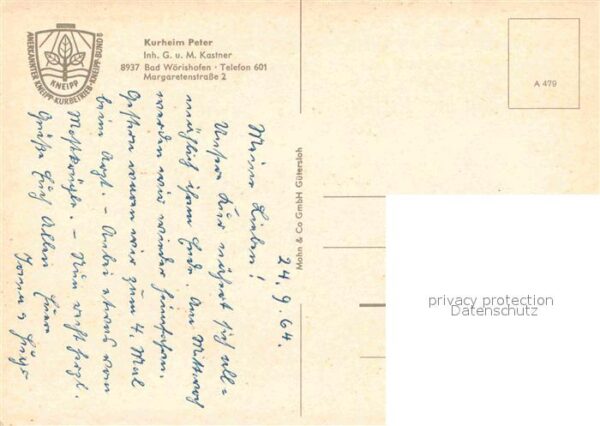 ANERKANNTER KNEIPP-KURBETRIEB·KNEIPP-BUND E
KNEIPP
Kurheim Peter
Inh. G. u. M. Kastner
8937 Bad Wörishofen · Telefon 601
Margaretenstraße 2
A 479
Mohn & Co GmbH Gütersloh
24.9.64.
Meine Lieben!
Unsere Kur nähert sich all-
mählich ihrem Ende. Am Mittwoch
werden wir wieder heimfahren.
Gestern waren wir zum 4. Mal
beim Arzt. - Anbei etwas vom
- Nun recht herzl.
Grüße Euch Allen Eure
privacy protection
Datenschutz